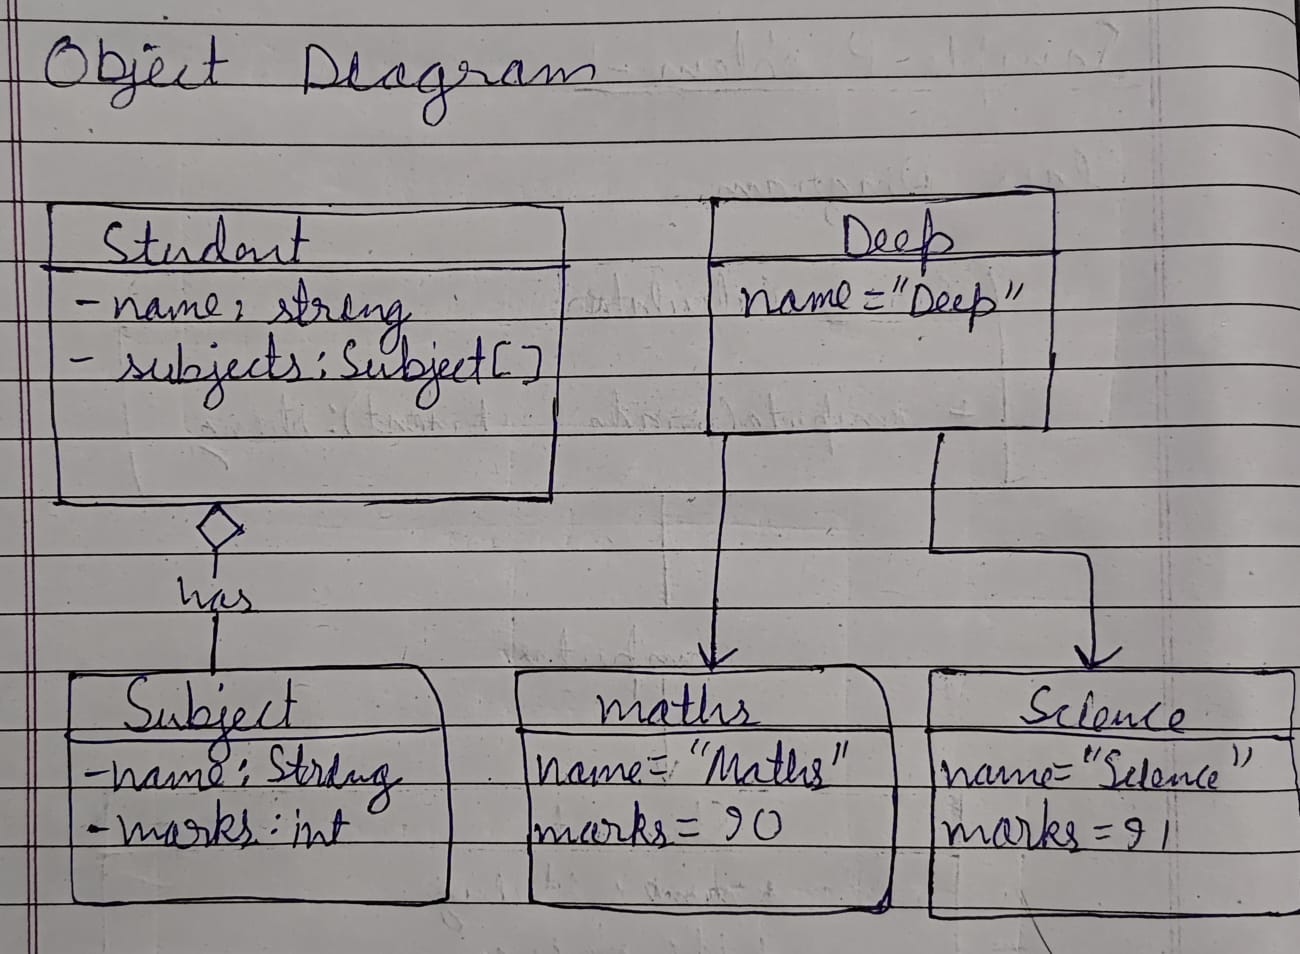 Object Diagram
Student
- name: string
- subjects: Subject[]
Deep
name = "Deep"
has
Subject
- name: String
- marks: int
maths
name = "Maths"
marks = 90
Science
name = "Science"
marks = 91